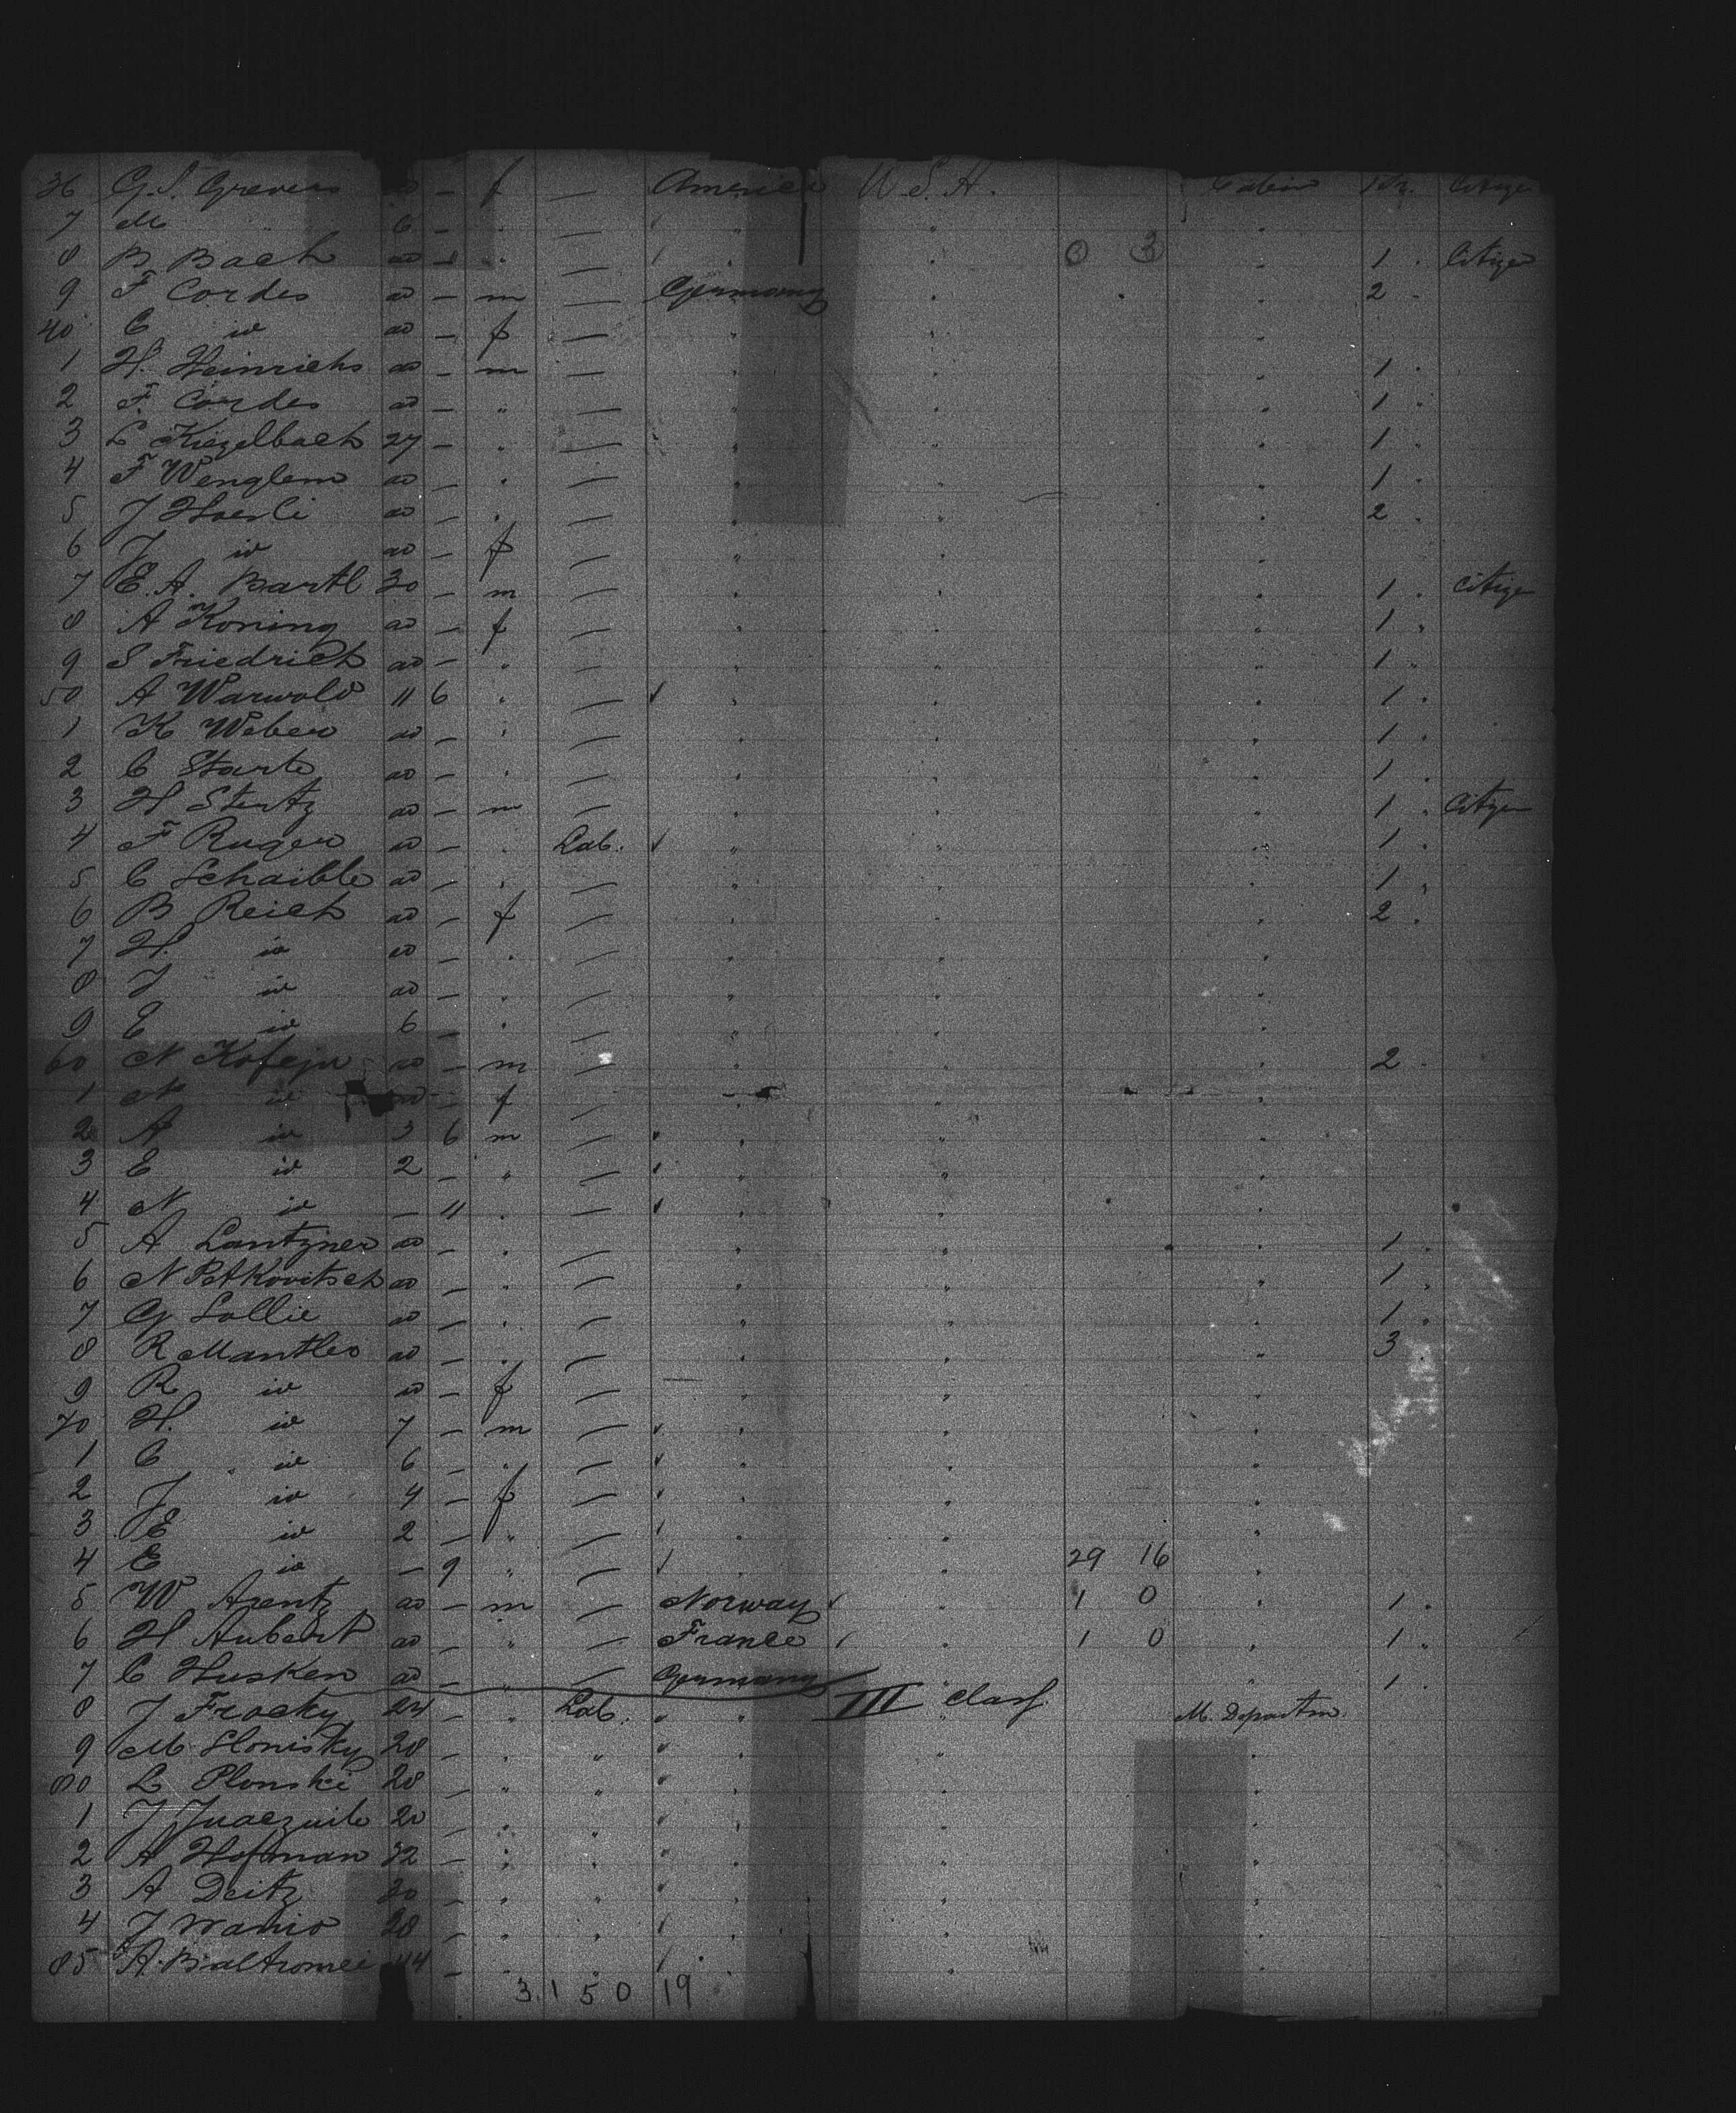 36 G. S. Grevers ad – f — America U. S. A. Cabin Citizen
7 M " 6 – " — " "
8 B Bach ad – " — " " 0 3 " 1 " Citizen
9 F Cordes ad – m — Germany " " 2 "
40 C id ad – f — " " "
1 H. Heinrichs ad – m — " " " 1 "
2 F. Cordes ad – " — " " " 1 "
3 L Kiezelbach 27 – " — " " " 1 "
4 F Wenglem ad – " — " " " 1 "
5 J Haesli ad – " — " " " 2 "
6 J id ad – f — " " "
7 E. A. Bartl 30 – m — " " " 1 " Citizen
8 A Koning ad – f — " " " 1 "
9 S Friedrich ad – " — " " " 1 "
50 A Warwold 11 6 " — " " " 1 "
1 K Weber ad – " — " " " 1 "
2 C Starte ad – " — " " " 1 "
3 H Stertz ad – m — " " " 1 " Citizen
4 F Ruger ad – " Lab. " " " 1 "
5 C Schaible ad – " — " " " 1 "
6 B Reich ad – f — " " " 2 "
7 H. id ad – " — " " "
8 J id ad – " — " " "
9 E id 6 – " — " " "
60 N Kofejn ad – m — " " " 2 "
1 N id ad – f — " " "
2 A id 3 6 m — " " "
3 E id 2 – " — " " "
4 N id – 11 " — " " "
5 A Lantzner ad – " — " " " 1 "
6 N Petkovitsch ad – " — " " " 1 "
7 G Lollie ad – " — " " " 1 "
8 R Mantler ad – " — " " " 3 "
9 R id ad – f — " " "
70 H. id 7 – m — " " "
1 C id 6 – " — " " "
2 J id 4 – f — " " "
3 E id 2 – " — " " "
4 E id – 9 " — " " 29 16 "
5 W Arentz ad – m — Norway " 1 0 " 1 "
6 H Aubert ad – " — France " 1 0 " 1 "
7 C Husken ad – " — Germany " 1 "
8 J Frocky 24 – " Lab. " III class M. Departm.
9 M Slonisky 28 – " " " " "
80 L Plonski 28 – " " " " "
1 J 20 – " " " " "
2 A Hofman 32 – " " " " "
3 A Deitz 30 – " " " " "
4 J Wanio 28 – " " " " "
85 A. Baltromei 44 – " " " " "
3.1 5 0 19